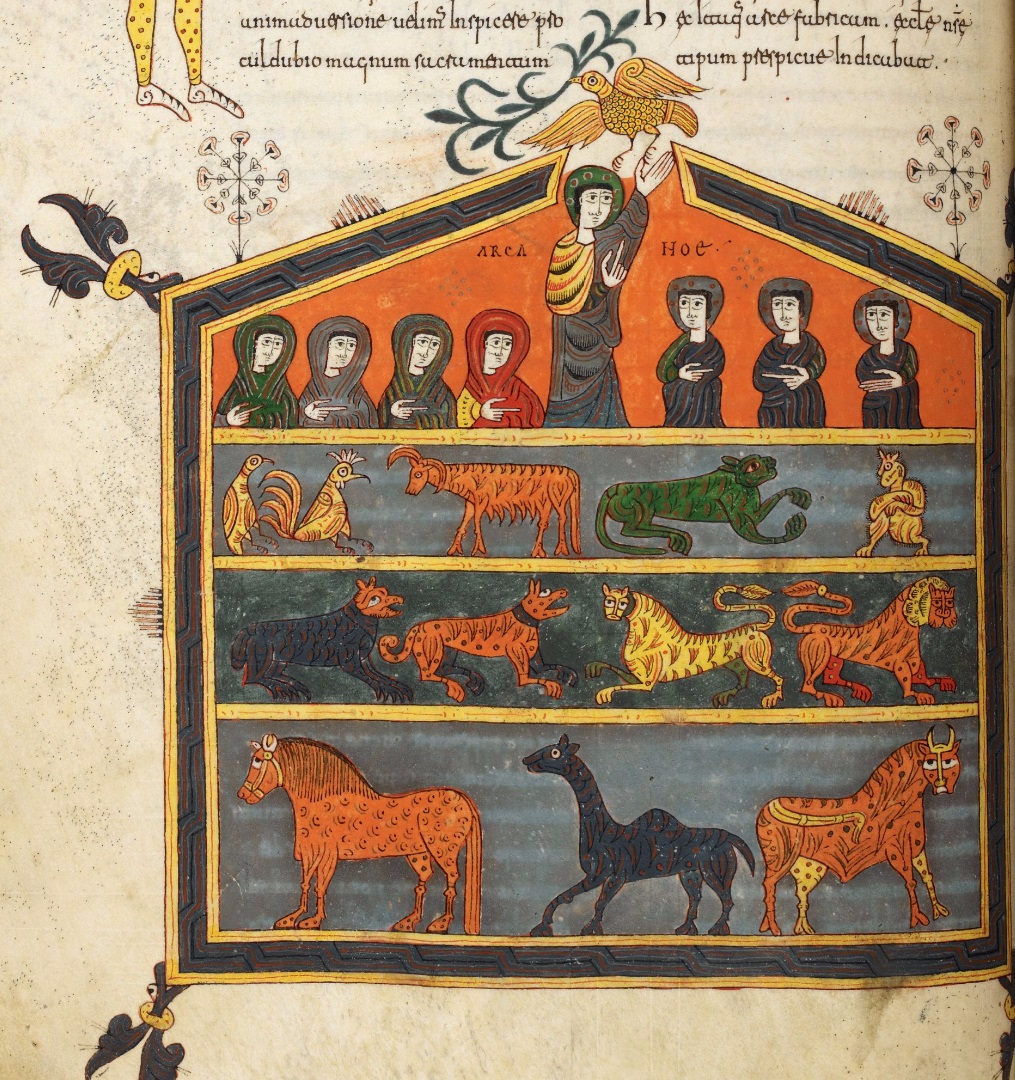 animaduersione uelim̄ Inspicere pro
culdubio magnum sacramentum
h ec itaq arce fabricam. eccl̄e nr̄e
tipum prespicue Indicabat.
ARCA NOE